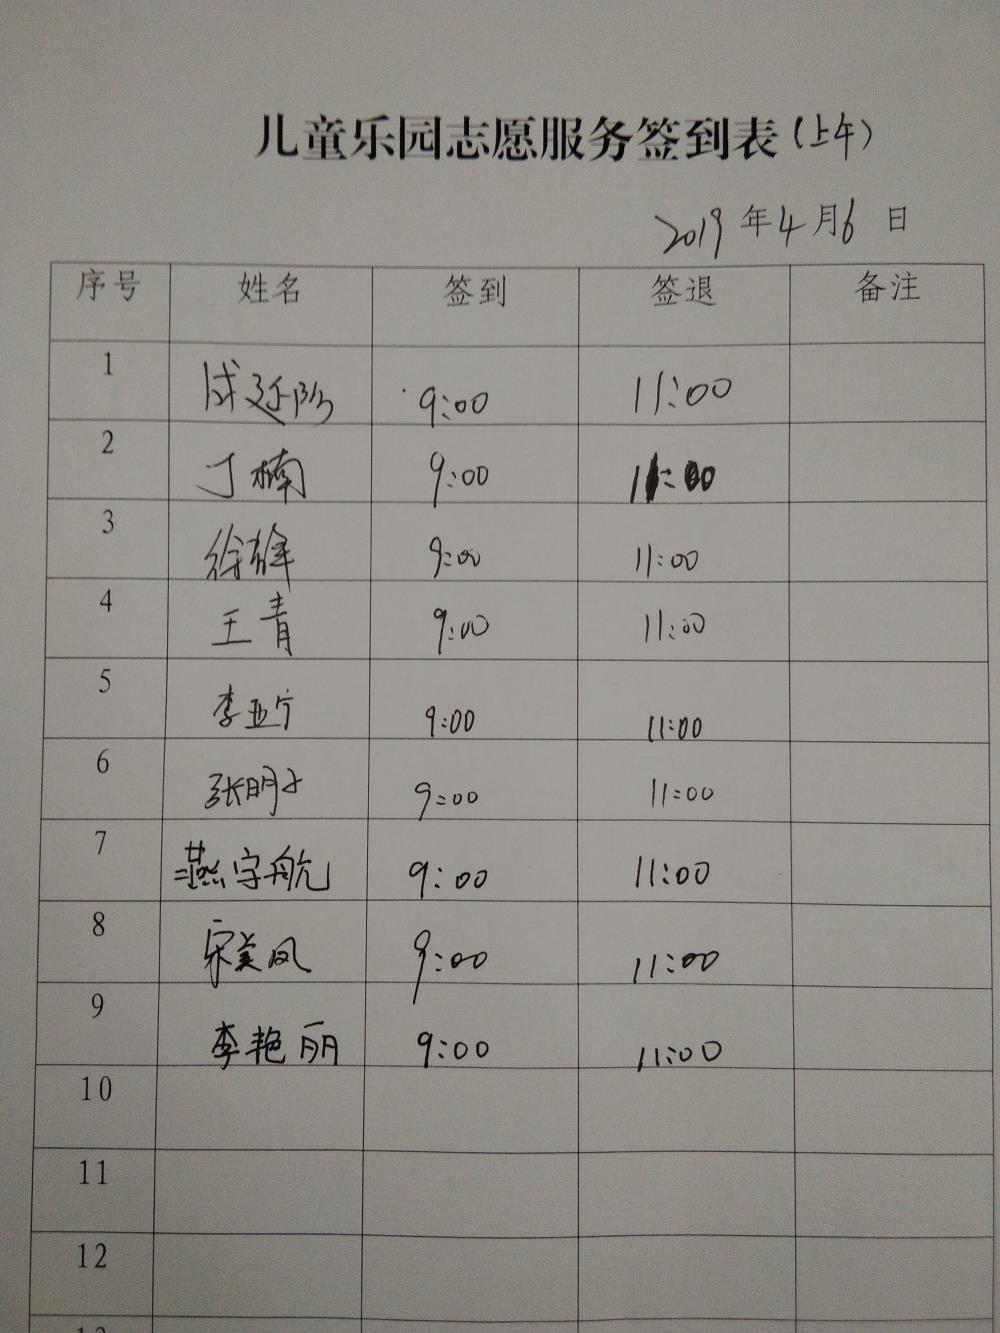 儿童乐园志愿服务签到表(上午)
2019年4月6日
序号 姓名 签到 签退 备注
1 成延 9:00 11:00
2 丁楠 9:00 11:00
3 徐 9:00 11:00
4 王青 9:00 11:00
5 李亚宁 9:00 11:00
6 张明 9:00 11:00
7 燕宇航 9:00 11:00
8 宋美凤 9:00 11:00
9 李艳丽 9:00 11:00
10
11
12